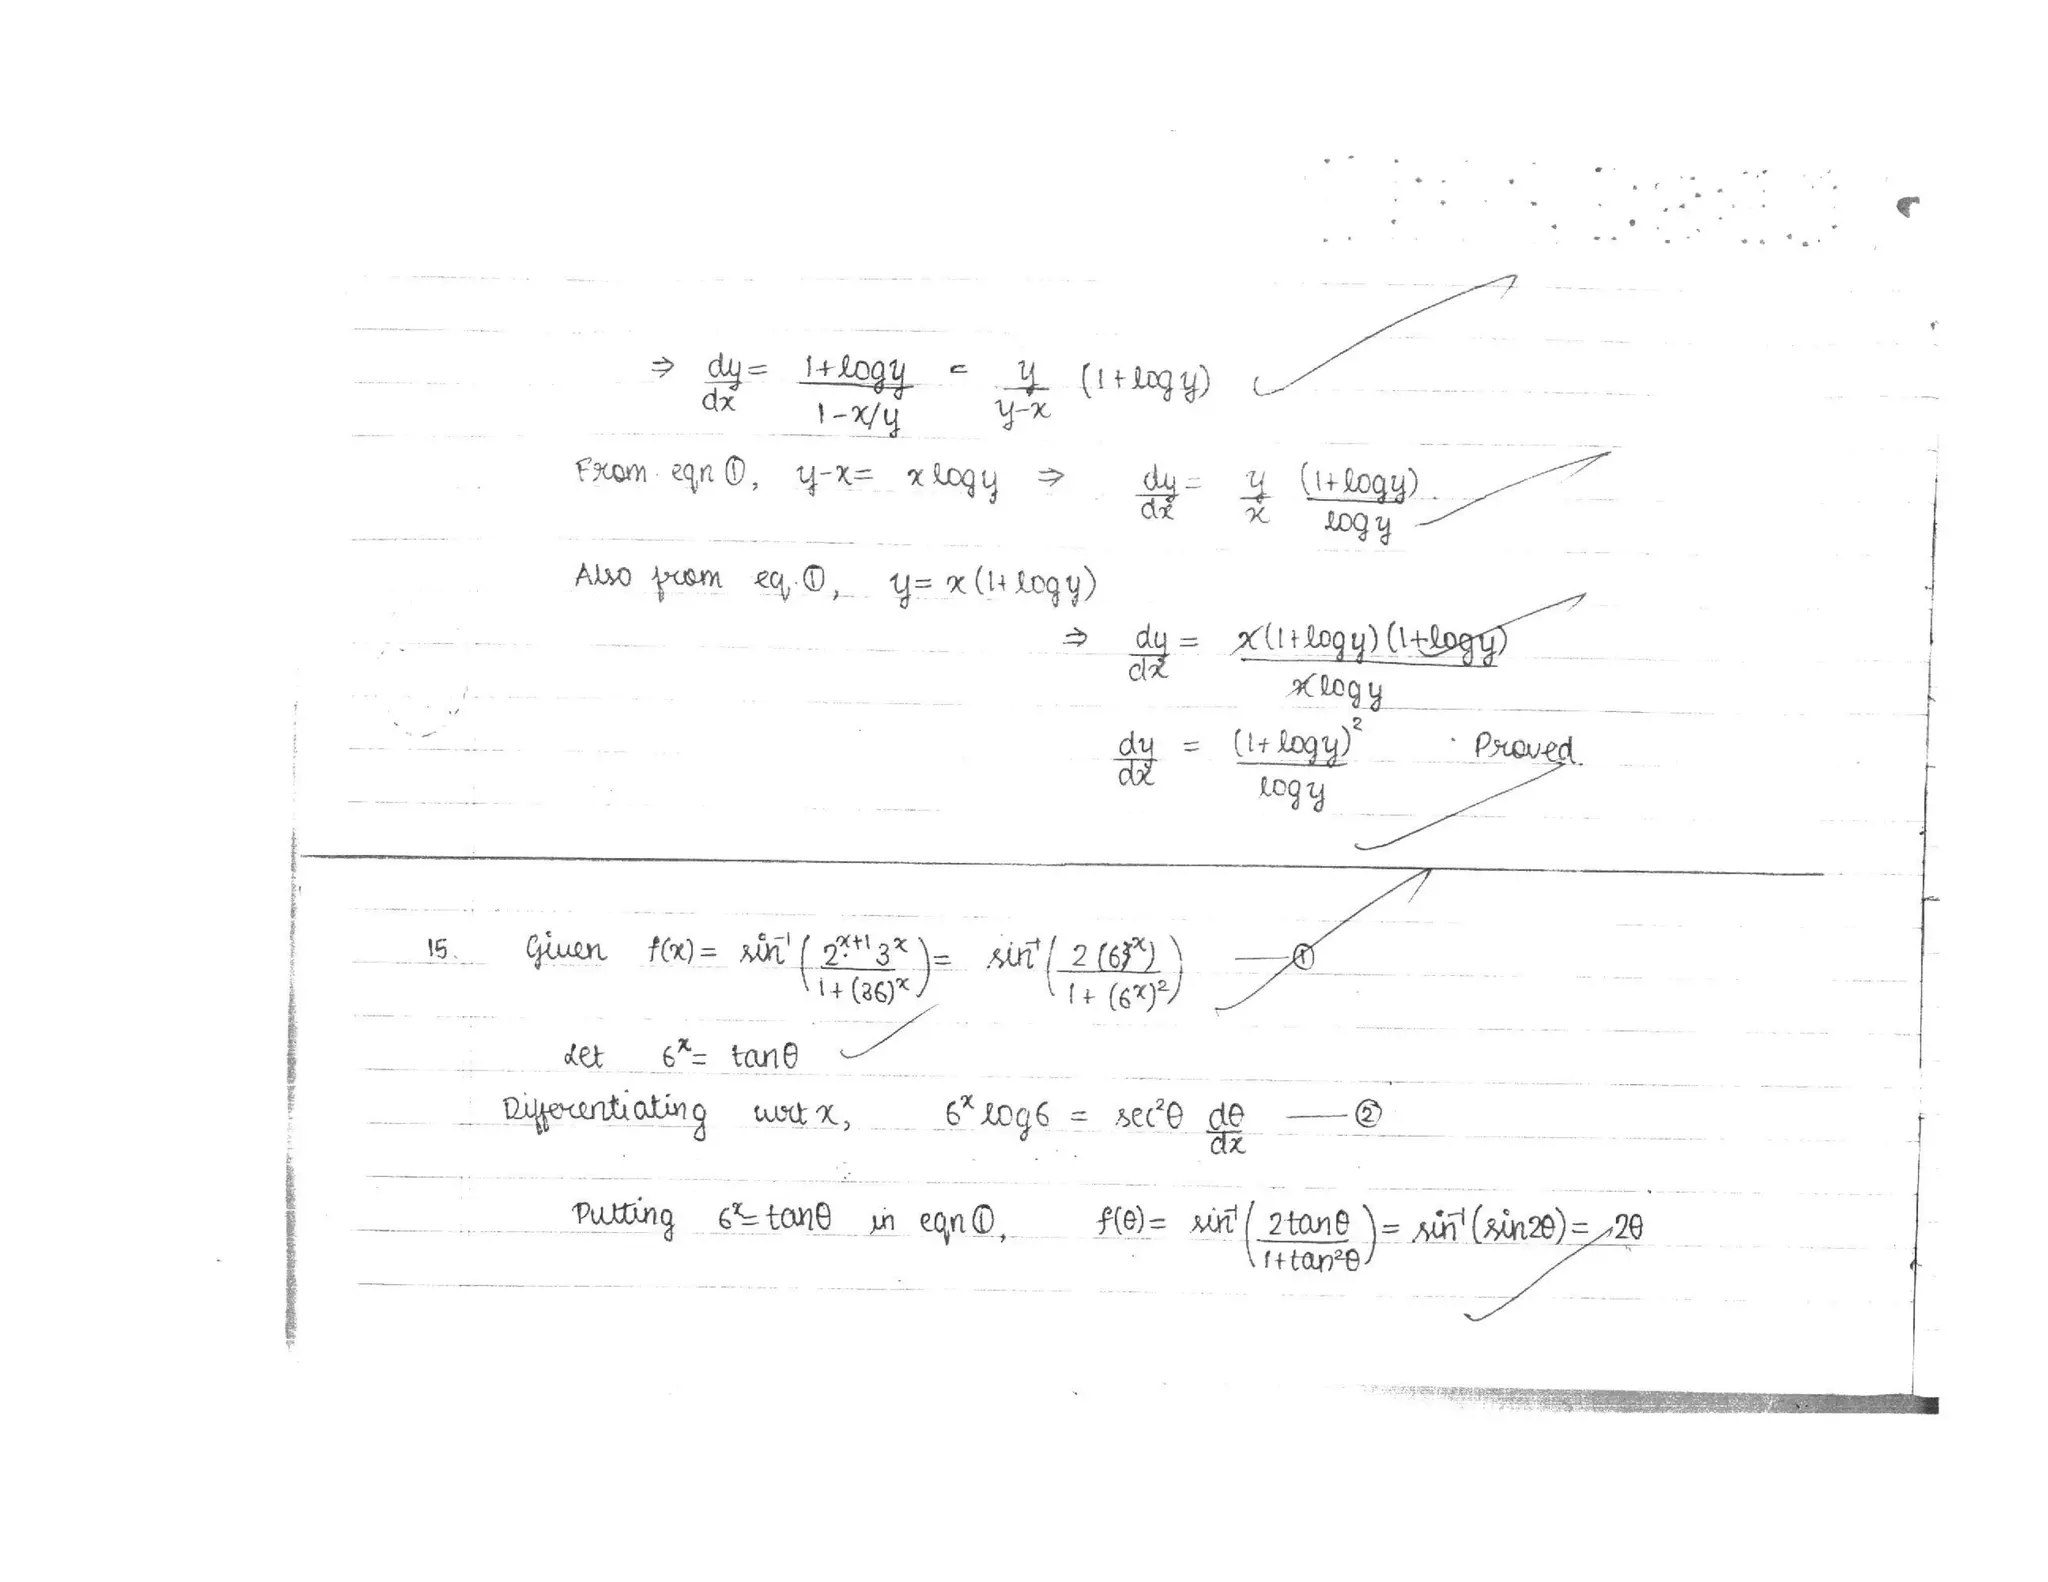 ⇒ dy/dx = (1+logy)/(1-x/y) = y/(y-x) (1+logy)
From eqn ①, y-x= xlogy ⇒ dy/dx = y/x (1+logy)/logy.
Also from eq.①, y= x(1+logy)
⇒ dy/dx = x(1+logy)(1+logy)/xlogy
dy/dx = (1+logy)²/logy . Proved.
15. Given f(x)= sin⁻¹(2ˣ⁺¹·3ˣ/1+(36)ˣ)= sin⁻¹(2(6ˣ)/1+(6ˣ)²) —①
Let 6ˣ= tanθ
Differentiating wrt x, 6ˣlog6 = sec²θ dθ/dx —②
Putting 6ˣ=tanθ in eqn①, f(θ)= sin⁻¹(2tanθ/1+tan²θ)= sin⁻¹(sin2θ)= 2θ